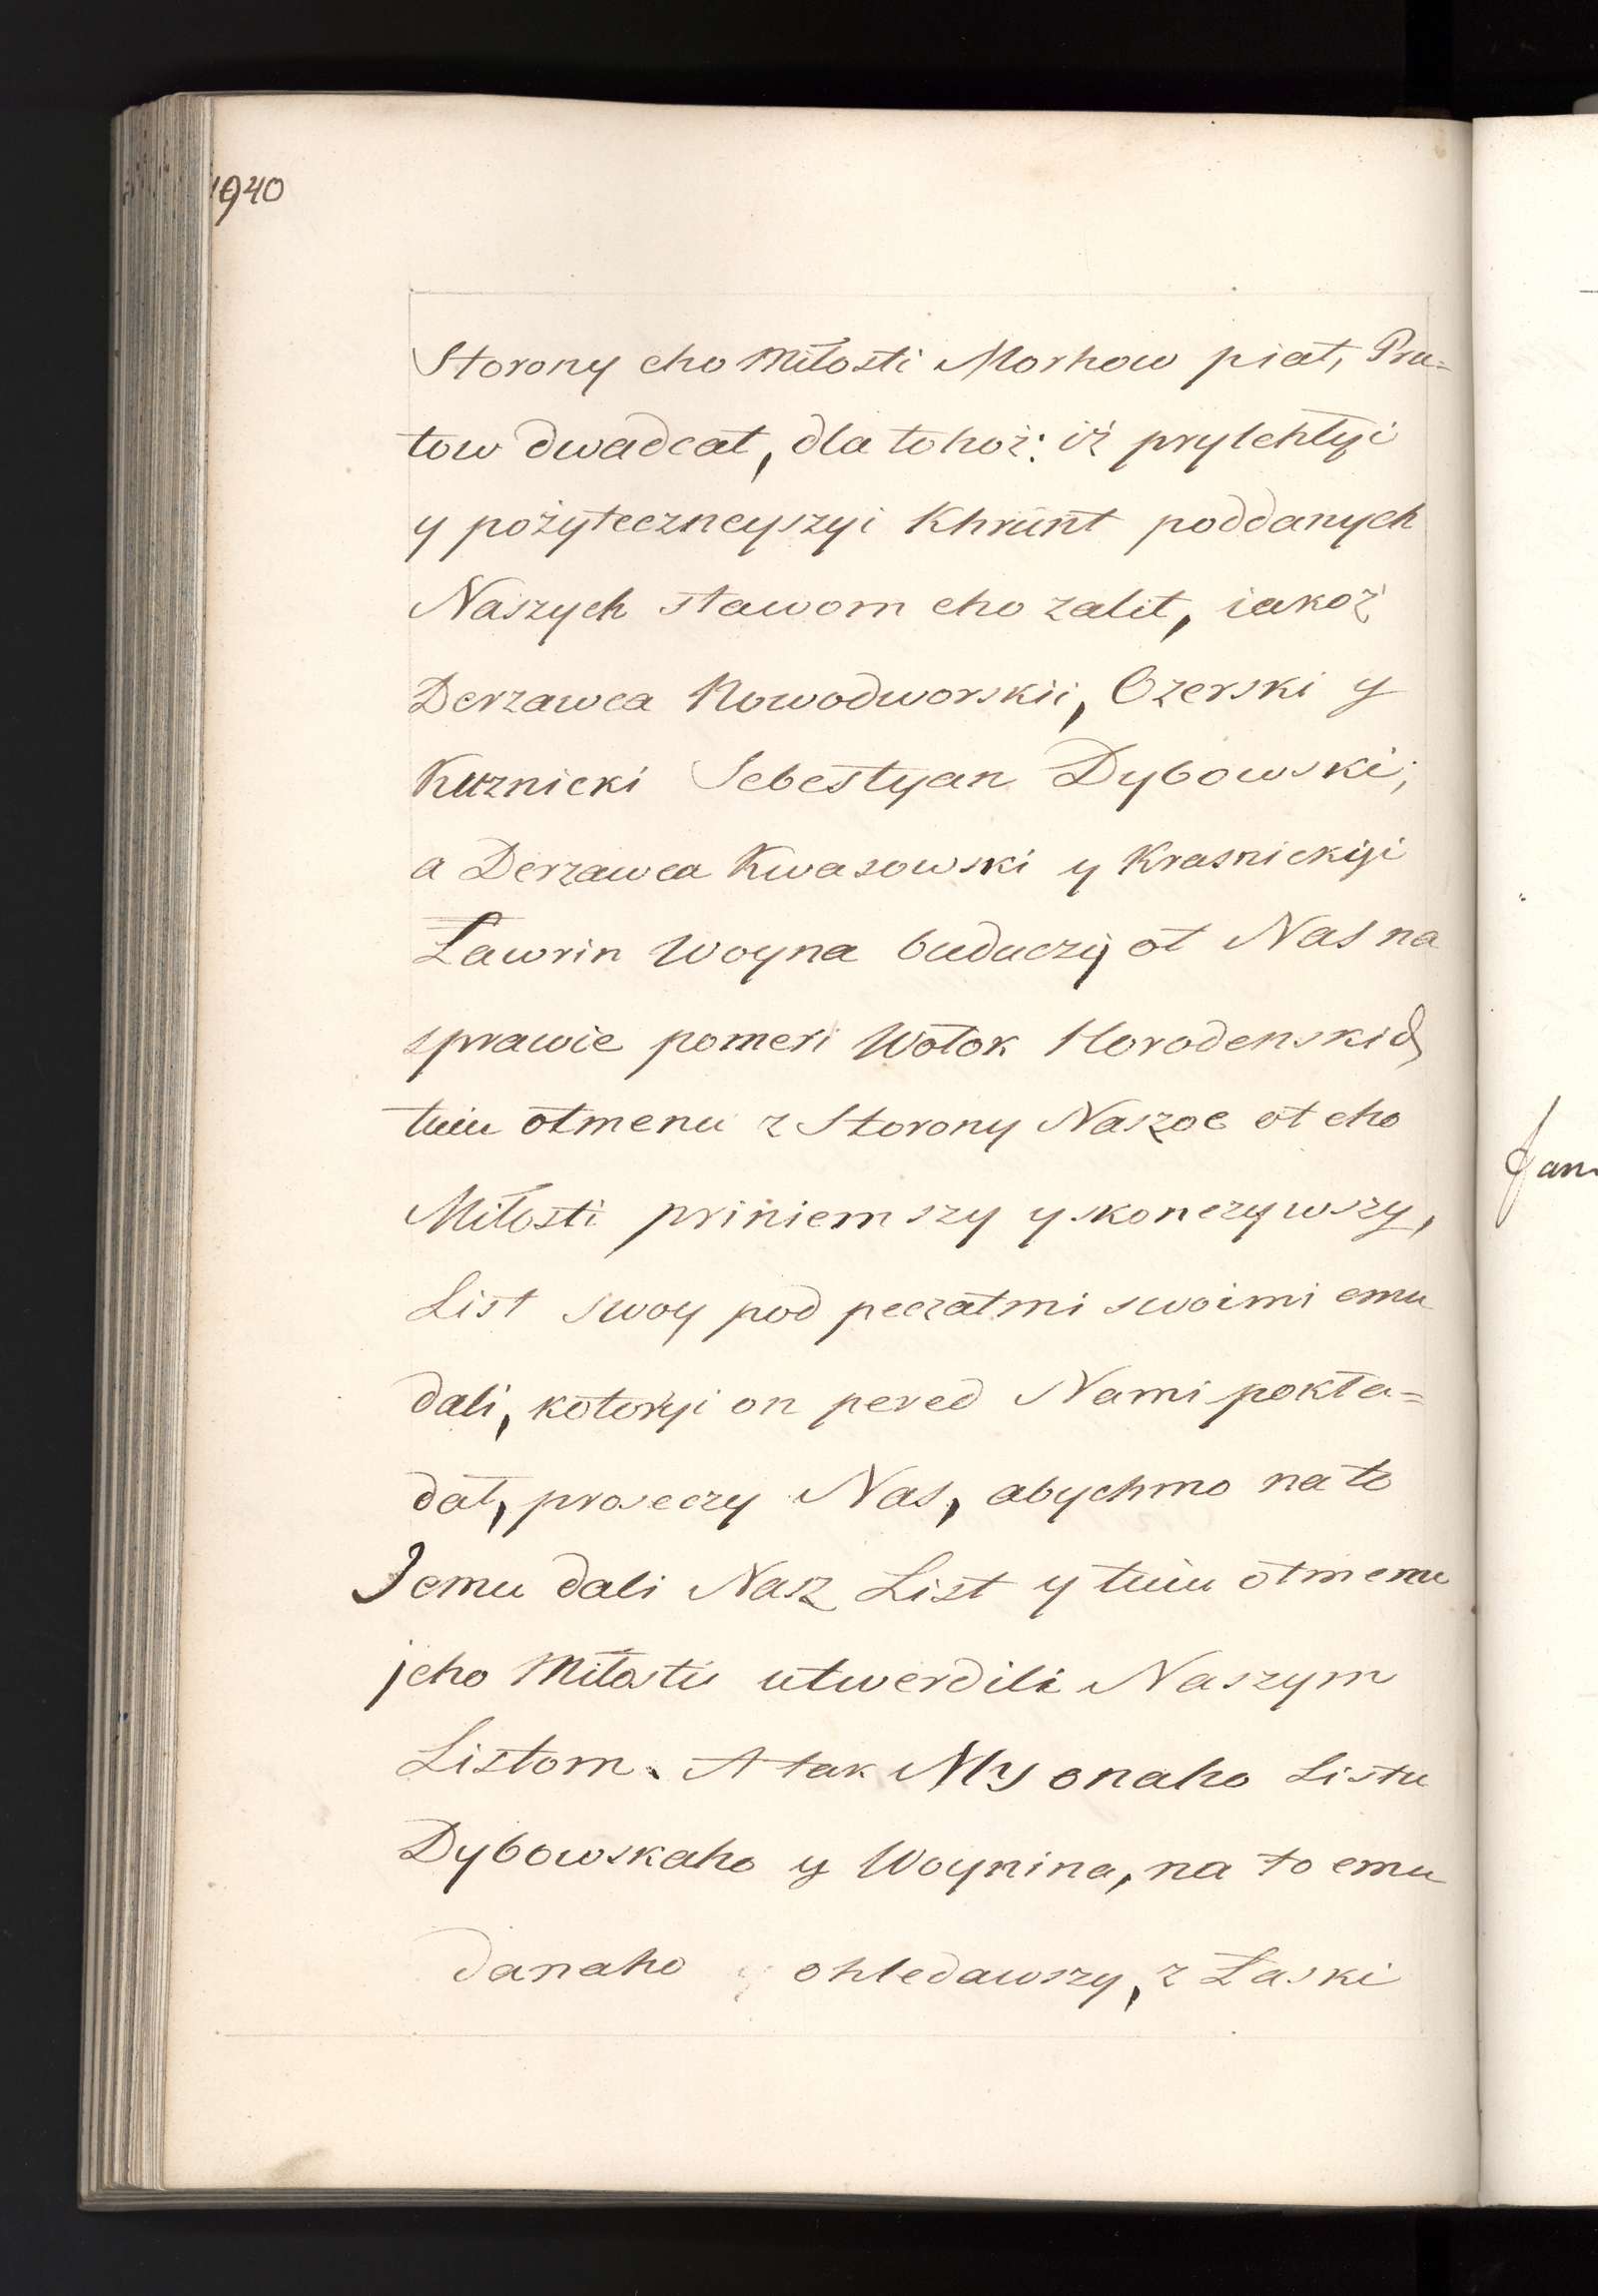 1940
Storony eho Miłosti Morhow piat, Pru=
tow dwadcat, dla tohoż: iż prylehłyi
y pożyteczneyszyi Khrunt poddanych
Naszych stawom eho zalił, iakoż
Derzawca Nowodworskii, Ozerski y
Kuznicki Sebestyan Dybowski;
a Derzawca Kwasowski y Krasnickiji
Ławrin Woyna buduczy ot Nas na
sprawie pomeri Wołok Horodenskich
tuiu otmenu z Storony Naszoe ot eho
Miłosti priniemszy y skonczywszy,
List swoy pod peczatmi swoimi emu
dali, kotoryi on pered Nami pokła=
dał, proseczy Nas, abychmo na to
Jemu dali Nasz List y tuiu otmenu
jeho Miłosti utwerdili Naszym
Listom. A tak My onaho Listu
Dybowskaho y Woynina, na to emu
danaho y ohledawszy, z Łaski
Jan